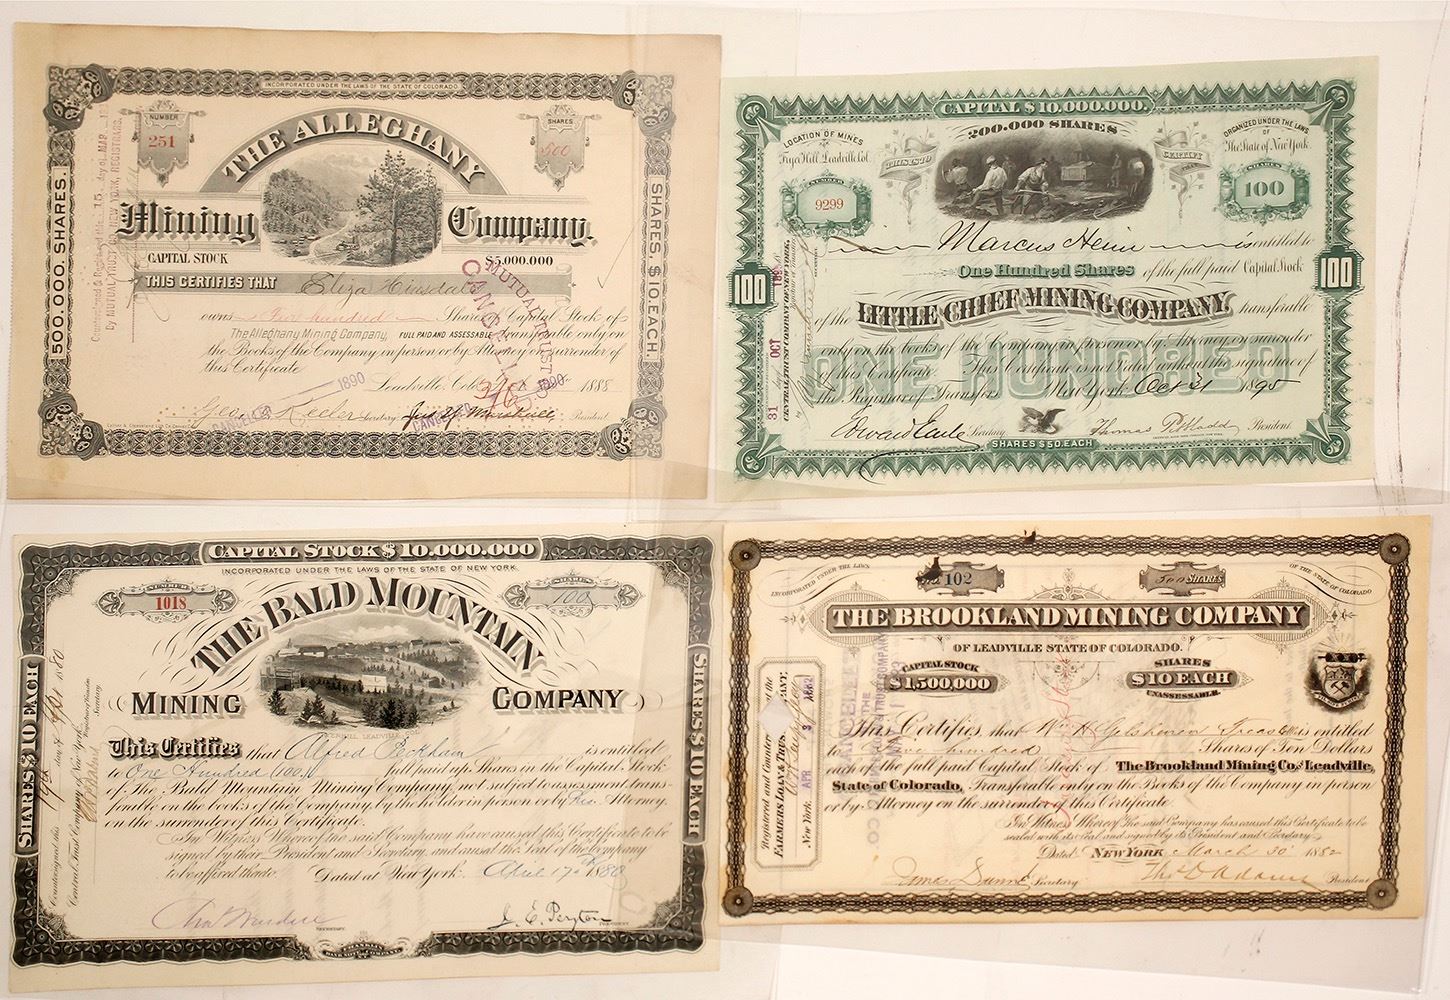 INCORPORATED UNDER THE LAWS OF THE STATE OF COLORADO.
NUMBER
251
SHARES
500
THE ALLEGHANY
Mining Company.
CAPITAL STOCK $5,000.000
THIS CERTIFIES THAT Eliza Hinsdale
owns Five hundred Shares of Capital Stock of
The Alleghany Mining Company, FULL PAID AND ASSESSABLE Transferable only on
the Books of the Company in person or by Attorney on surrender of
this Certificate
Leadville, Colo. 1888
Geo. Keeler Secretary President
500.000. SHARES.
SHARES, $10 EACH.
Countersigned & Registered this 15 day of MAR
By MUTUAL TRUST CO. OF NEW YORK, REGISTRARS.
MUTUAL TRUST CO.
CANCELLED
1890
CANCELLED
CANCELLED
CAPITAL $10.000.000.
200.000 SHARES
LOCATION OF MINES
Fryer Hill, Leadville, Col.
NUMBER
9299
THIS IS TO
CERTIFY
THAT
ORGANIZED UNDER THE LAWS
OF
The State of New York.
SHARES
100
Marcus Heim is entitled to
One Hundred Shares of the full paid Capital Stock
of the LITTLE CHIEF MINING COMPANY, transferable
only on the books of the Company in person or by Attorney on surrender
of this Certificate. This Certificate is not valid without the signature of
the Registrar of Transfers. New York, Oct 31 1895
ONE HUNDRED
Edward Earle Secretary Thomas P. President
SHARES $50 EACH
100
100
31 day of OCT 189
CENTRAL TRUST COMPANY OF NEW YORK,
CAPITAL STOCK $10.000.000
INCORPORATED UNDER THE LAWS OF THE STATE OF NEW YORK.
NUMBER
1018
SHARES
100
THE BALD MOUNTAIN
MINING COMPANY
LEADVILLE, COL.
This Certifies that Alfred Peckham is entitled
to One Hundred (100) full paid up Shares in the Capital Stock
of The Bald Mountain Mining Company, not subject to assessment, trans-
ferable on the books of the Company, by the holder in person or by his Attorney
on the surrender of this Certificate.
In Witness Whereof the said Company have caused this Certificate to be
signed by their President and Secretary, and caused the Seal of the Company
to be affixed thereto. Dated at New York April 17th 1880
J. E. Peyton
SECRETARY PRESIDENT
SHARES $10 EACH
SHARES $10 EACH
Countersigned this day of 1880
Central Trust Company of New York,
FRANKLIN
BANK NOTE COMPANY
INCORPORATED UNDER THE LAWS OF THE STATE OF COLORADO
102
500 SHARES
THE BROOKLAND MINING COMPANY
OF LEADVILLE STATE OF COLORADO.
CAPITAL STOCK
$1,500,000
SHARES
$10 EACH
UNASSESSABLE.
This Certifies, that Treas is entitled
to Five hundred Shares of Ten Dollars
each of the full paid Capital Stock of The Brookland Mining Co. of Leadville,
State of Colorado, Transferable only on the Books of the Company in person
or by Attorney on the surrender of this Certificate.
In Witness Whereof the said Company has caused this Certificate to be
sealed with its Seal and signed by its President and Secretary.
Dated NEW YORK March 30 1882
James Dunne Secretary Thos. D. Adams President
Registered and Countersigned
FARMERS LOAN & TRUST COMPANY.
New York APR 3 1882
CANCELLED